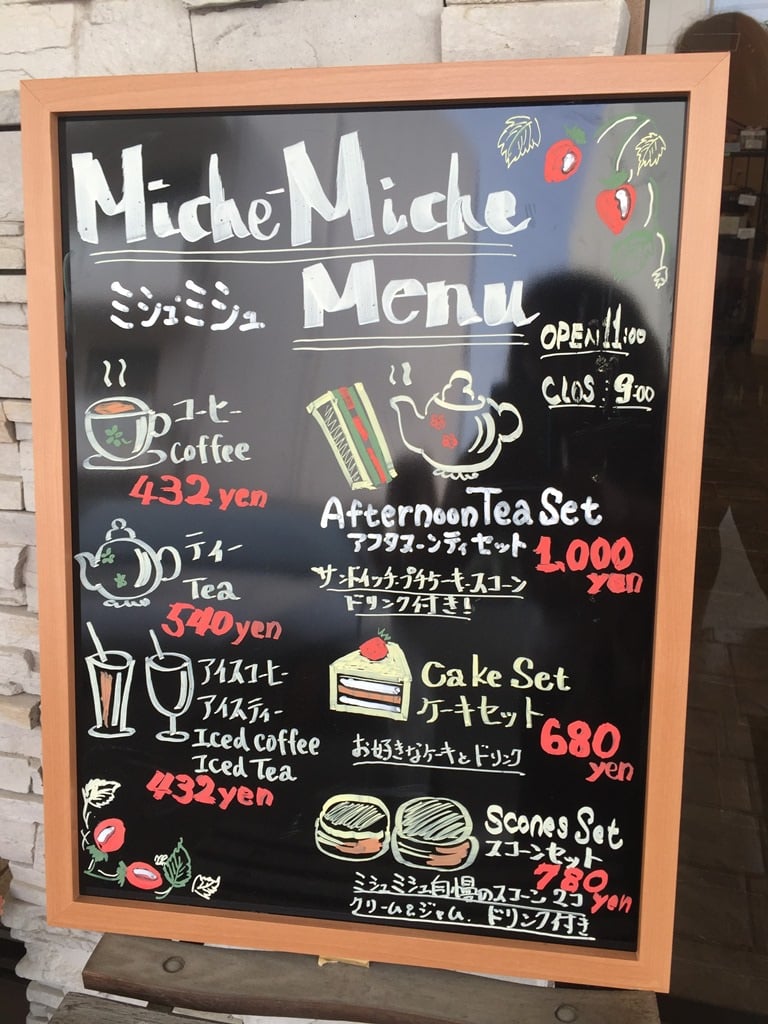 Miche Miche
ミシュミシュ
Menu
OPEN 11:00
CLOS : 9:00
コーヒー
Coffee
432 yen
ティー
Tea
540 yen
アイスコーヒー
アイスティー
Iced Coffee
Iced Tea
432 yen
Afternoon Tea Set
アフタヌーンティセット
1,000
yen
サンドイッチ・プチケーキ・スコーン
ドリンク付き!
Cake Set
ケーキセット
680
yen
お好きなケーキとドリンク
Scones Set
スコーンセット
780
yen
ミシュミシュ自慢のスコーン 2コ
クリーム&ジャム、ドリンク付き